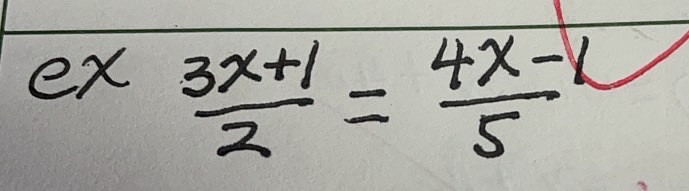 ex (3x+1)/2 = (4x-1)/5